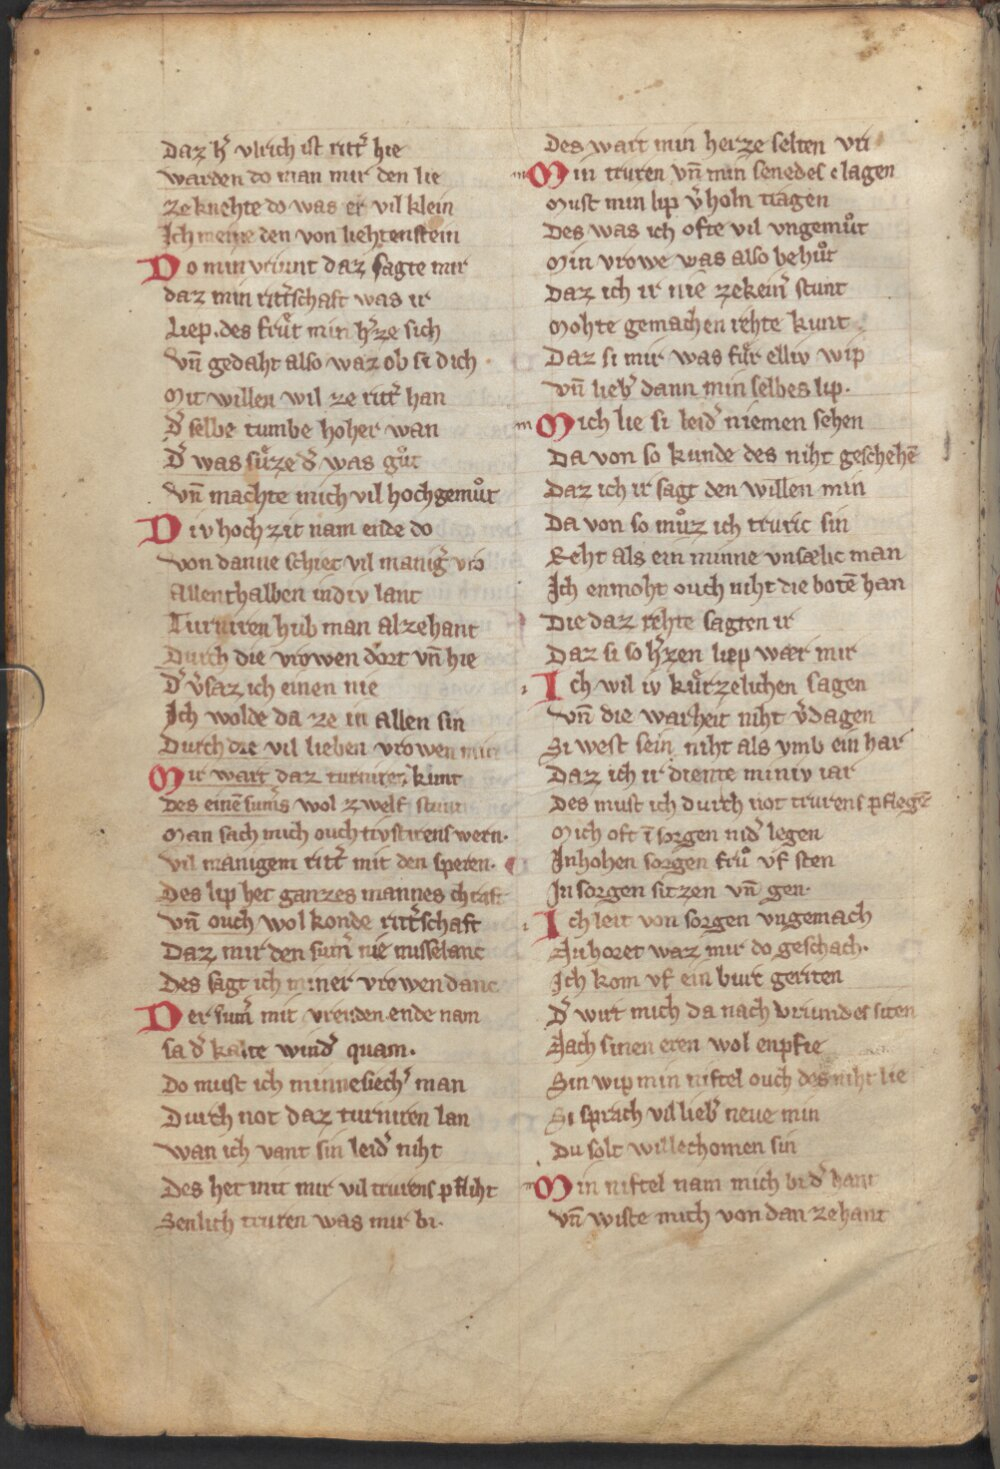 Daz h̓ vlrich ist ritt̓ hie
warden do man mir den lie
ze knehte do was er vil klein
Ich meine den von liehtenstein
Do min vriunt daz sagte mir
daz min ritt̓schaft was ir
Liep. des frůt min h̓ze sich
vñ gedaht also waz ob si dich
Mit willen wil ze ritt̓ han
D̓ selbe tumbe hoher wan
D̓ was sůrze d̓ was gůt
vñ machte mich vil hochgemůt
Div hochzit nam ende do
von danne schiet vil manig̓ vro
Allenthalben indiv lant
Turniren hub man alzehant
Durch die vrowen dort vñ hie
D̓ v̓saz ich einen nie
Ich wolde da ze in allen sin
Durch die vil lieben vrowen min
Mir wart daz turniren kunt
Des einē sum̓s wol zwelf stunt
Man sach mich ouch tivstirens wern.
vil manigem ritt̓ mit den speren.
Des lip het ganzes mannes chraft
vñ ouch wol konde ritt̓schaft
Daz mir den sum̓ nie misselanc
Des sagt ich miner vrowen danc
Der sum̓ mit vreuden ende nam
sa d̓ kalte wind̓ quam.
Do must ich minnesiech̓ man
Durch not daz turniren lan
wan ich vant sin leid̓ niht
Des het mit mir vil trurens pfliht
Senlich truren was mir bi.
Des wart min herze selten vri
Min truren vñ min senedes clagen
Must min lip v̓holn tragen
Des was ich ofte vil vngemůt
Min vrowe was also behůt
Daz ich ir nie zekein̓ stunt
Mohte gemachen rehte kunt
Daz si mir was fůr elliv wip
vñ lieb̓ dann min selbes lip.
Mich lie si leid̓ niemen sehen
Da von so kunde des niht geschehē
Daz ich ir sagt den willen min
Da von so můz ich truric sin
Reht als ein minne vnsælic man
Ich enmoht ouch niht die botē han
Die daz rehte sagten ir
Daz si so h̓zen liep wær mir
Ich wil iv kůrzelichen sagen
vñ die warheit niht v̓dagen
Si west sein niht als vmb ein har
Daz ich ir diente miniv iar
Des must ich durch not trurens pflegē
Mich oft ī sorgen nid̓ legen
In hohen sorgen frů vf sten
In sorgen sitzen vñ gen.
Ich leit von sorgen vngemach
Nu horet waz mir do geschach.
Ich kom vf ein burc geriten
D̓ wirt mich da nach vriundes siten
Nach sinen eren wol enpfie
Sin wip min niftel ouch des niht lie
Si sprach vil lieb̓ neue min
Du solt willechomen sin
Min niftel nam mich bi d̓ hant
vñ wiste mich von dan zehant